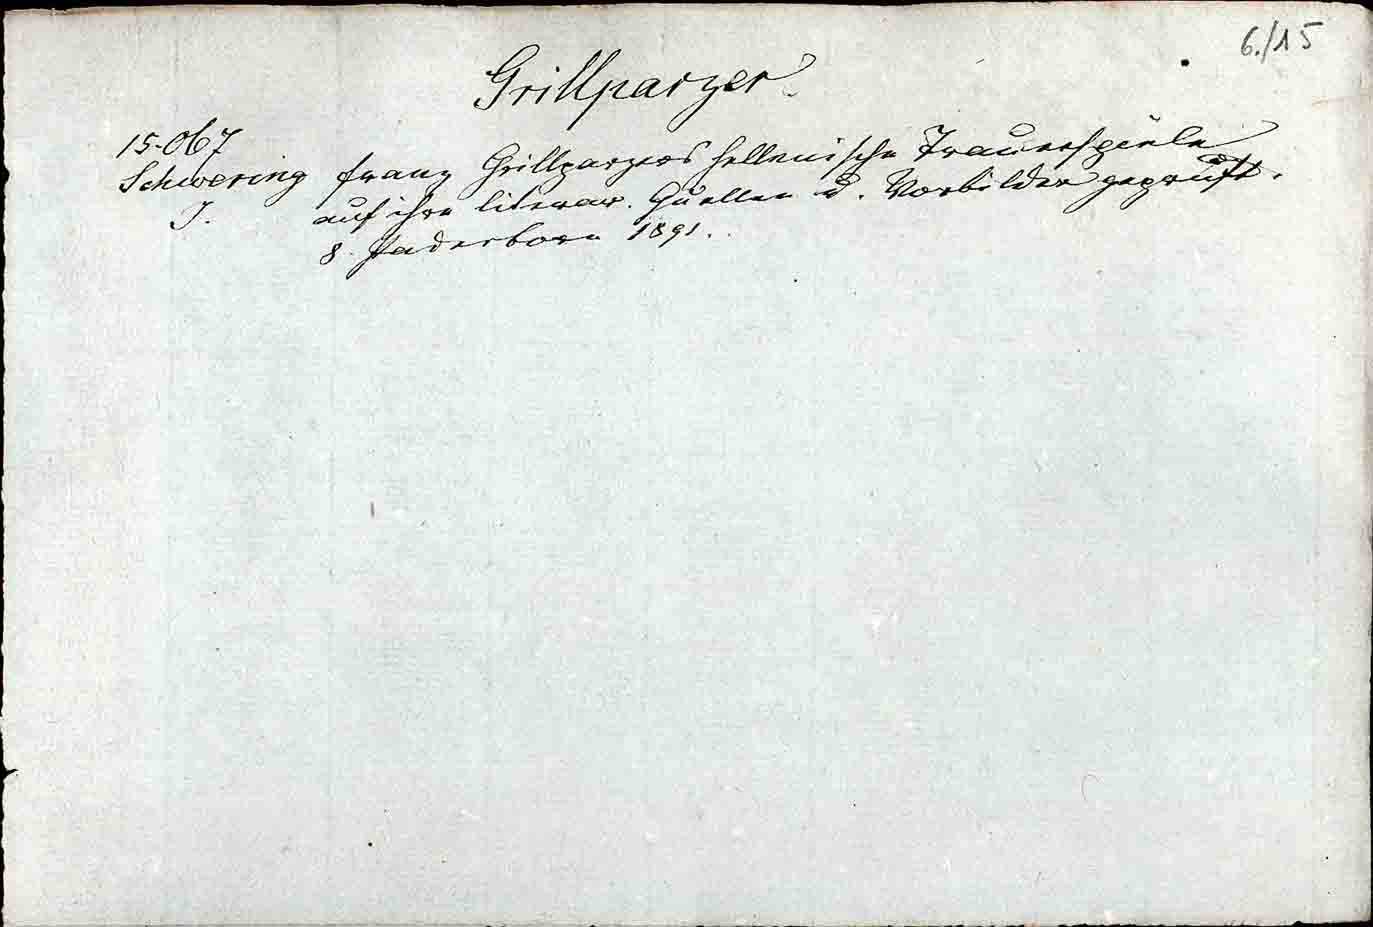 6./15
Grillparzer
15.067
Schwering Franz Grillparzers hellenische Trauerspiele
J. auf ihre literar. Quellen u. Vorbilder geprüft.
8. Paderborn 1891.